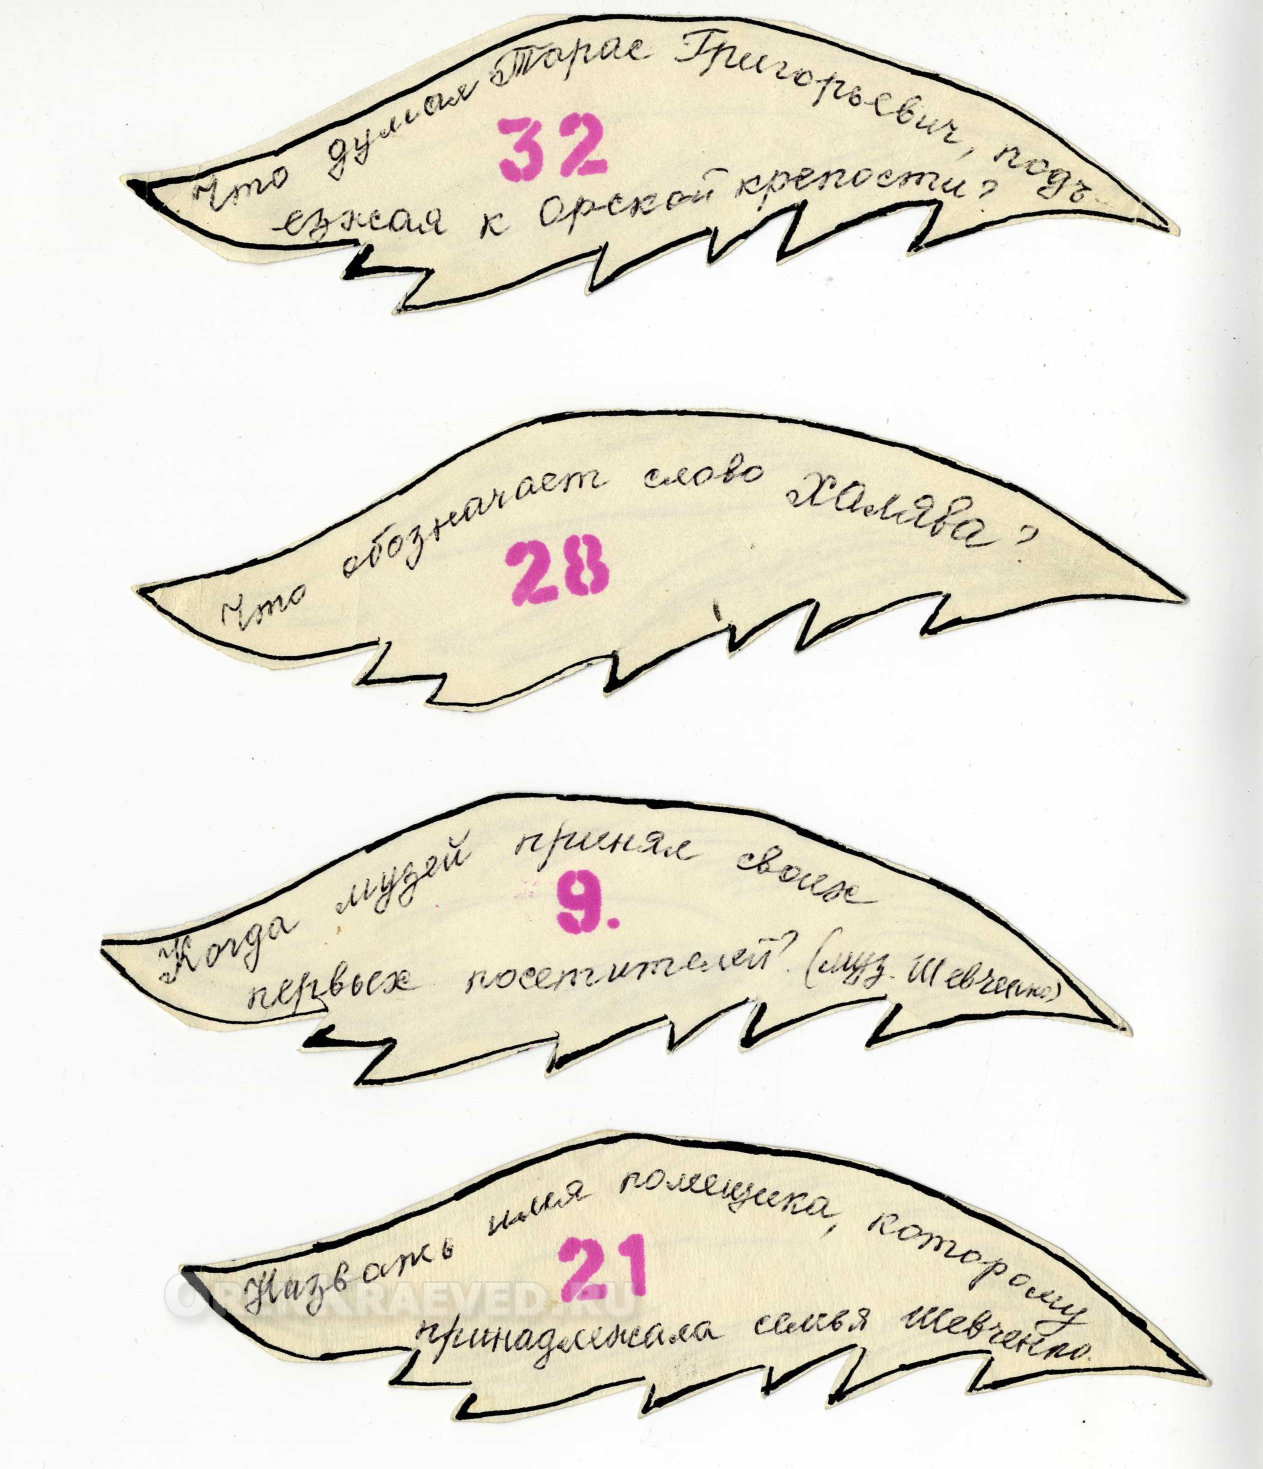 Что думал Тарас Григорьевич, подъ-
32
езжая к Орской крепости?
Что обозначает слово Халява?
28
Когда музей принял своих
9.
первых посетителей? (муз. Шевченко)
Назвать имя помещика, которому
21
принадлежала семья Шевченко.
ORENKRAEVED.RU